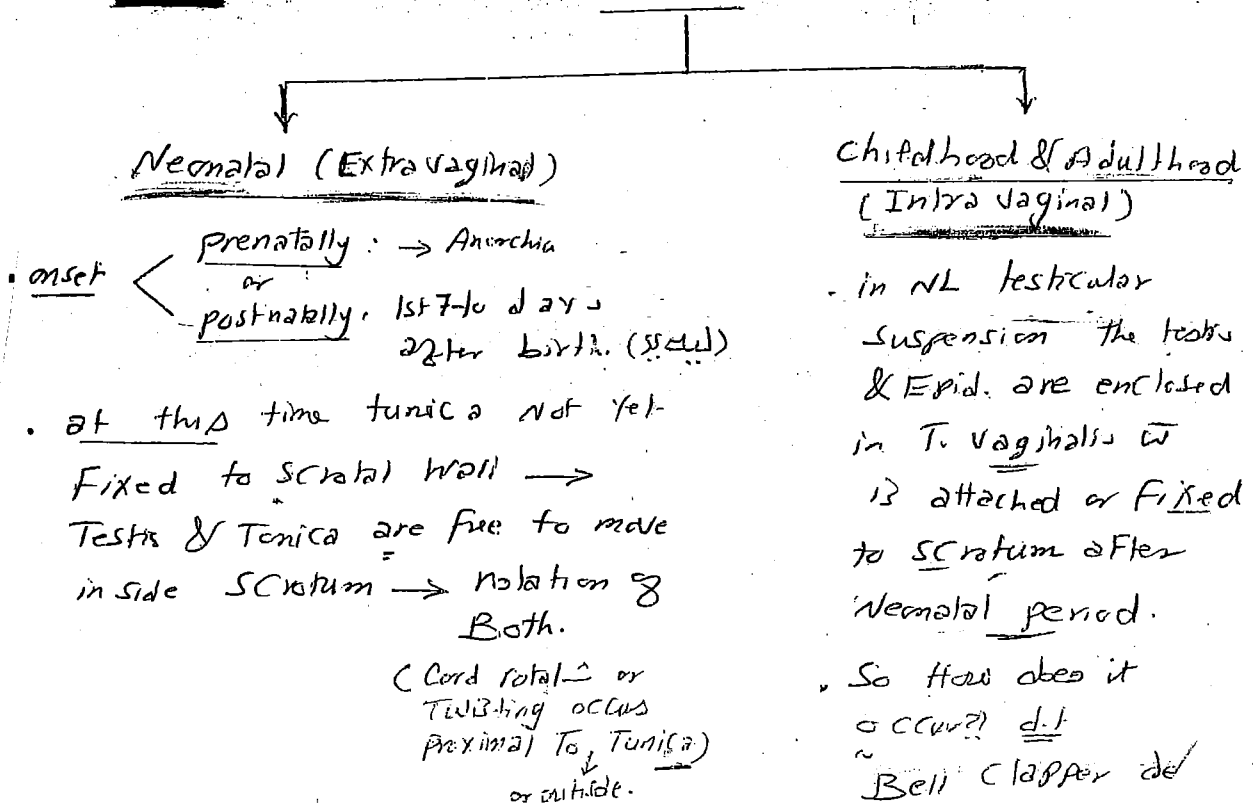 Neonatal (Extravaginal)
. onset
prenatally : → Anorchia
or
postnatally. 1st 7-10 days
after birth.
. at this time tunica Not Yet
Fixed to scrotal wall →
Testis & Tunica are free to move
in side scrotum → rotation of
Both.
( Cord rotat= or
Twisting occus
proximal To, Tunica)
or outside.
Childhood & Adulthood
(Intra vaginal)
. in NL testicular
suspension the testis
& Epid. are enclosed
in T. vaginalis w̅
is attached or Fixed
to scrotum after
Neonatal period.
. So How does it
occur?? d.t
Bell Clapper de